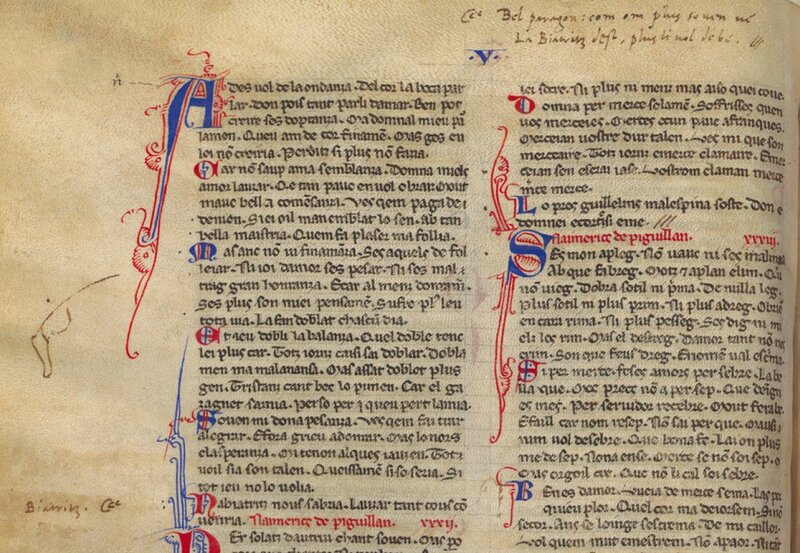 Cᵉᵉ Bel paragon: com om plus soven ve
La Biatritz dest, plus li vol de be. ///
.V.
A dos uol de la ondania. Del cor la boca par
lar. don pois tant parli damar. Ben pot
creire ses doptanza. Qa domnal mieu pa
lamen. Queu am de cor finamen. Mas ges en
lei nō creiria. Perdutz si plus nō faria.
Car nō saup ama semblanza. Domna mielz
amor lauzar. Ce tan paue en uol obrar. Mout
maue bell a comēsanza. Ves qem paga de i
demon. Si ei oil man emblat lo sen. ab tan
bella maistria. Quem fa plaser ma follia.
Mas anc nō ui finamāza. Ses aquele de fol
leiar. Ni ioi damor ses pesar. Ni ses mal i
trag gran honranza. Ecar al meu donram.
Ses plus son mei pensamē. Sufre pl leu
tota uia. La fin doblat chascū dia.
Et ieu dobla la balanza. Quel doble tenc
lei plus car. Tot iorn causi sai doblar. Dobla
men ma malananza. Mas assat doblet plus
gen. Tristans cant bec lo pimen. Car el ga
zagnet samia. Perso per i queu pert la mia.
Souen mi dona pesanza. Ves qem fai tan
alegrar. Efora grieu adomar. Mas lo nors
el asperanza. On tenon alques iauzen. Tot i
ueil sia son talen. Queissamē si so seria. Si
tot ieu no lo uolia.
Na biatritz nous sabria. Lauzar tant cous cō
uenria. Naimeric de piguillan. xxxii.
Per solatz dautrui chant souen. Mas po
iei socre. Ni plus ni meni mas aiso quei coue.
Domna per merce solamē. Soffrissez quen
uos mercei es. Merces etun paue afranques.
Mercei an uostre dur talen. Ves mi que son
merceaire. Tot iorn emerce clamaire. Emer
ceian son eserai iase. Vostrom claman merce
mice merce.
Lo pros guillelms malespina soste. Don e
domnei ecortesi eme. ///
Naimeric de piguillan. xxxiii.
Ses mon apleg. Nō uauc ni ses ma lima
Ab que fabreg. Motz e aplan elim. Ca
nō uieg. Dobra sotil ni pima. De nulla leg.
Plus sotil ni plus prim. Ni plus adreg. Obrie
en cara rima. Ni plus pesseg. Ses dig ni mi
eli lec rim. Mas el destreg. Damor tant nō
erim. Son que feus dreg. Enemen ual esma.
Si per merce. feses amors per sebre. La be
lla que. Mes precs nō a per sep. Que deign
es me. Per seruidor recebre. Mout ferab
Efaill car nom resep. Nō sai per que. Mausi
num uol desebre. Que bona fe. Lai on plus
me de sep. Nona ense. Merce se nō son sep. o
Mas orgoil car. Que nō li cal soi sebre.
Ben os damor. Queia de merce sema. Las per
queu plor. Quel cor ma deiorsem. Si me
secor. Ans se loinge sestrema. De mi caillor
Vol quem muet encansem. Nō apaor. Ni tan
Biatritz. Cᵉᵉ